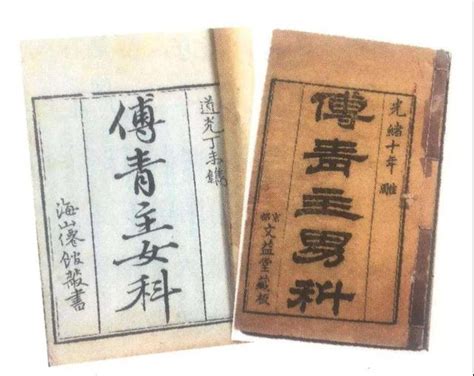 道光丁未鐫
傅青主女科
海山仙館叢書
光緒十年雕
傅青主男科
京都文益堂藏板